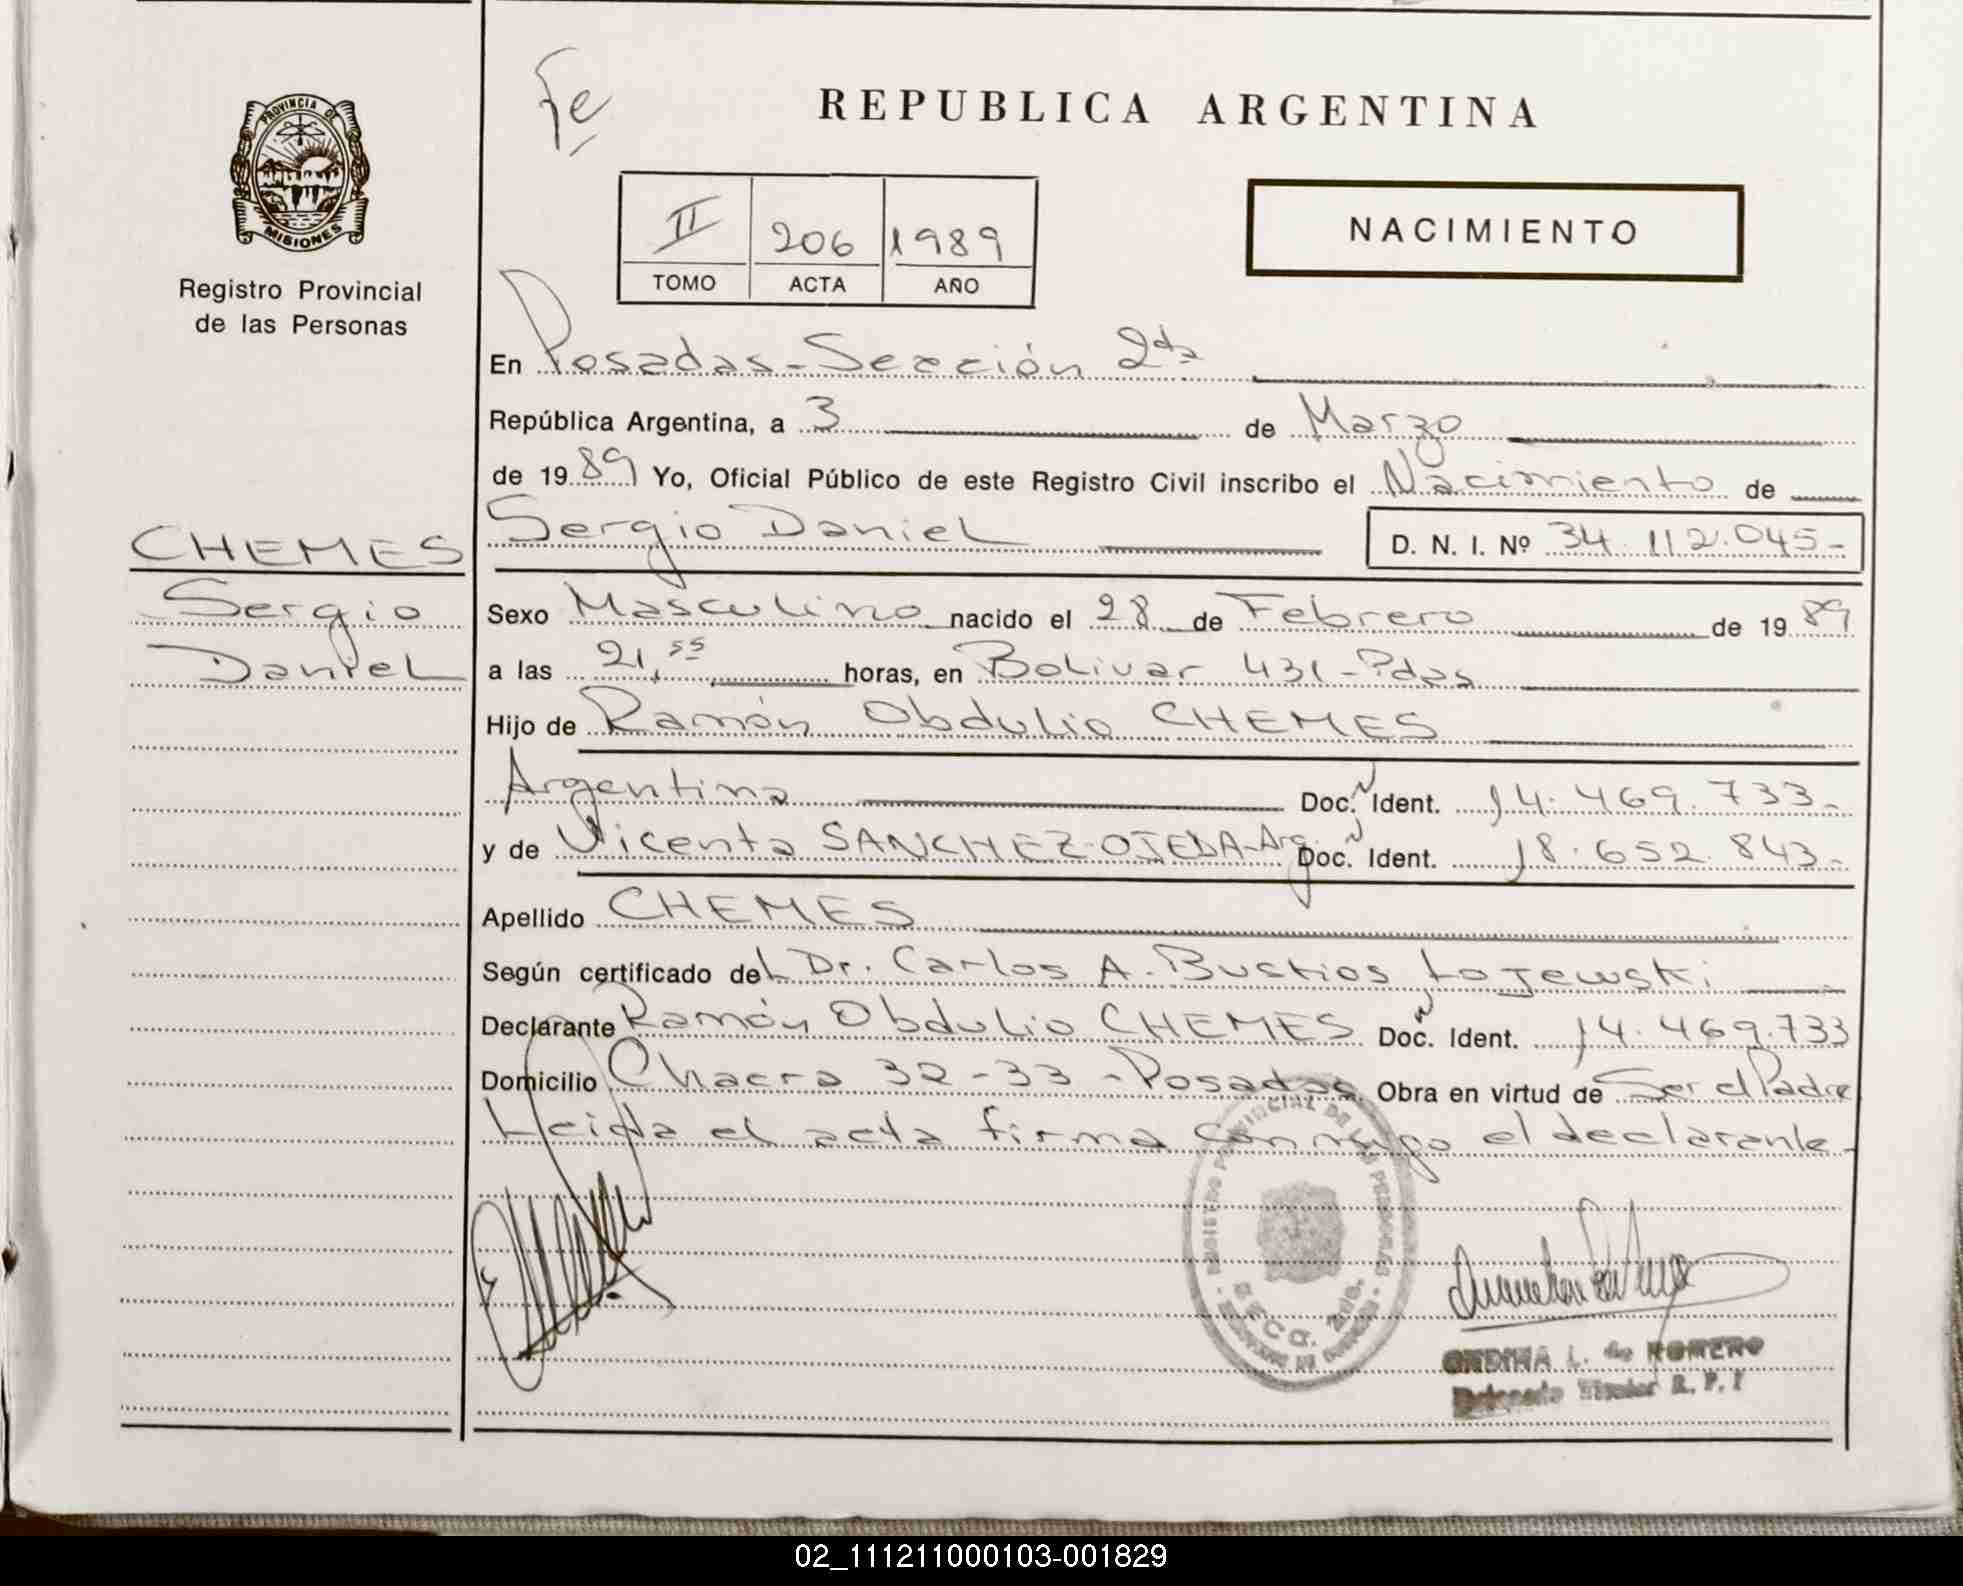 Fe
REPUBLICA ARGENTINA
PROVINCIA DE
MISIONES
II 206 1989
TOMO ACTA AÑO
NACIMIENTO
Registro Provincial
de las Personas
En Posadas-Sección 2da
República Argentina, a 3 de Marzo
de 1989 Yo, Oficial Público de este Registro Civil inscribo el Nacimiento de
CHEMES
Sergio
Daniel
Sergio Daniel D. N. I. Nº 34.112.045-
Sexo Masculino nacido el 28 de Febrero de 1989
a las 21,55 horas, en Bolivar 431-Pdas
Hijo de Ramón Obdulio CHEMES
Argentina Doc. Ident. 14.469.733-
y de Vicenta SANCHEZ-OJEDA-Arg Doc. Ident. 18.652.843-
Apellido CHEMES
Según certificado del Dr. Carlos A. Bustios Lojewski
Declarante Ramón Obdulio CHEMES Doc. Ident. 14.469.733
Domicilio Chacra 32-33-Posadas Obra en virtud de Ser el Padre
Leida el acta firma conmigo el declarante-
REGISTRO PROVINCIAL DE LAS PERSONAS
SECC. 2da.
ONDINA L. de ROMERO
Delegado Titular R. P.
02_111211000103-001829